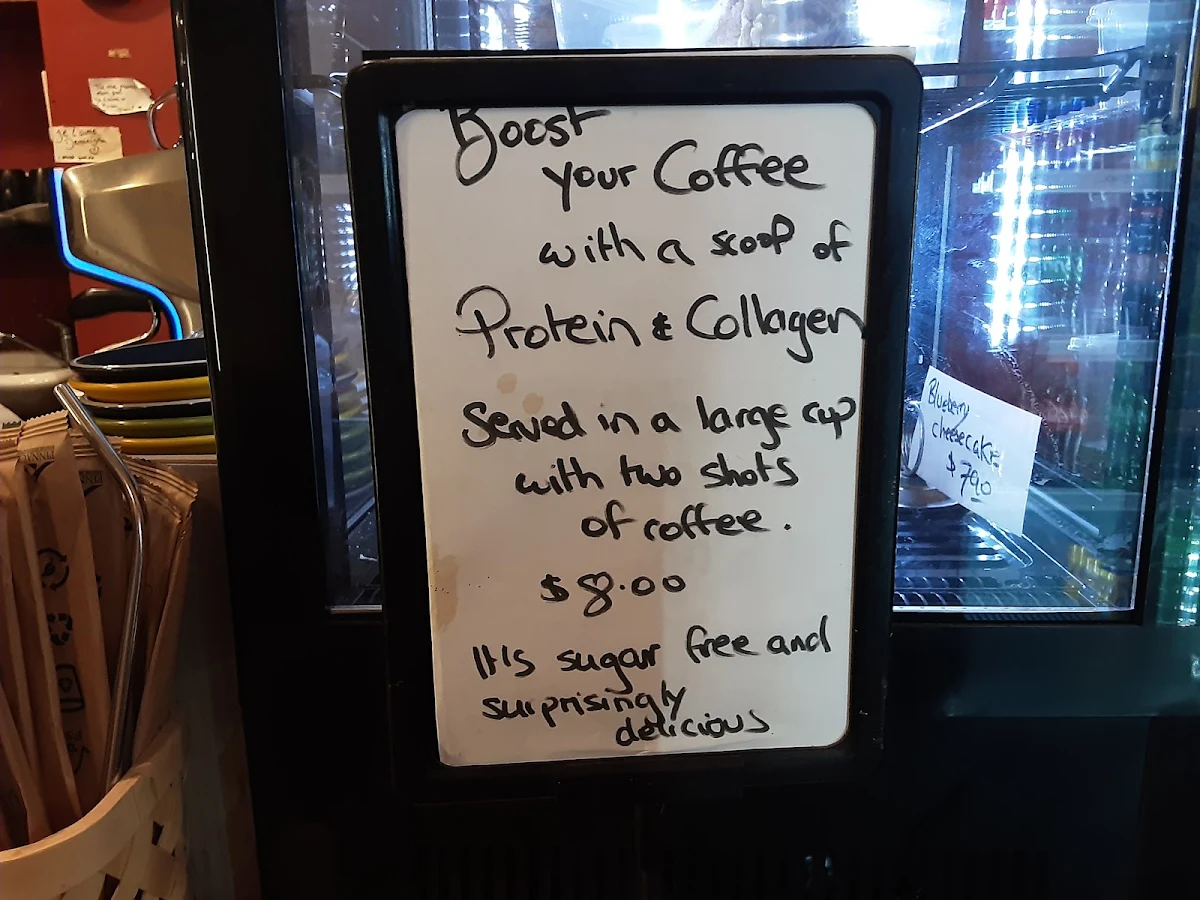 Boost
your Coffee
with a scoop of
Protein & Collagen
Served in a large cup
with two shots
of coffee.
$8.00
It's sugar free and
surprisingly
delicious
Blueberry
cheesecake
$7.90